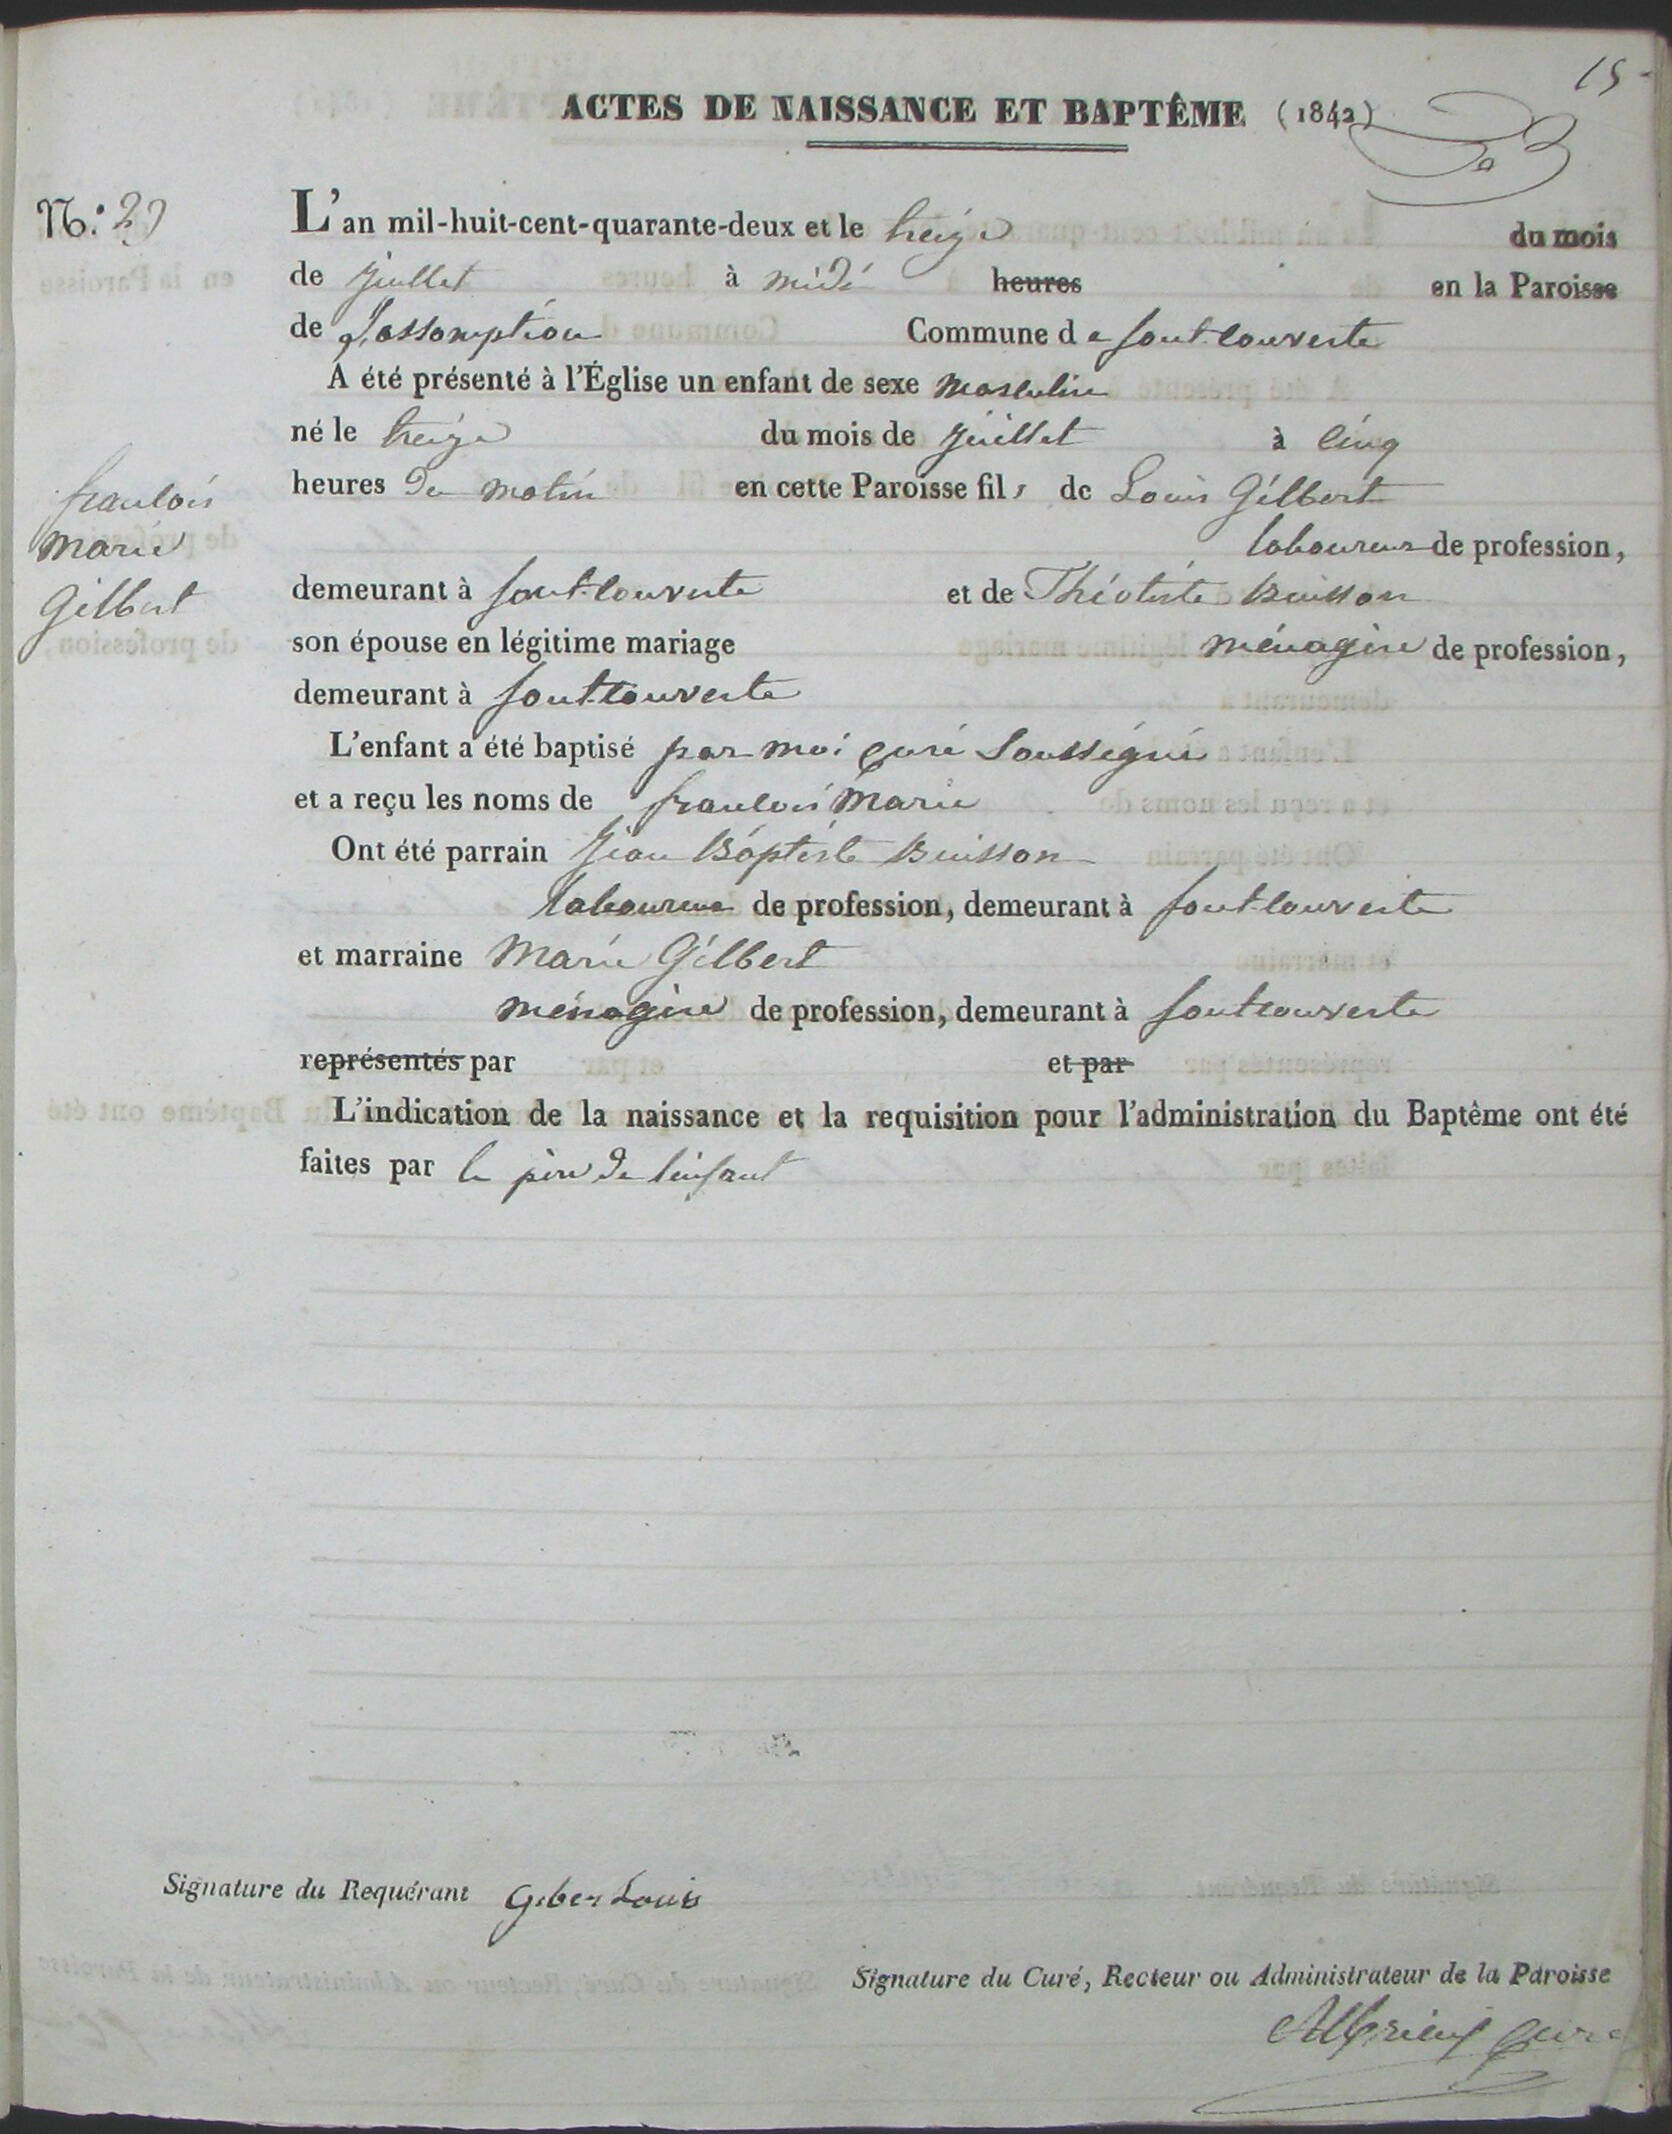 15
ACTES DE NAISSANCE ET BAPTÊME (1842)
N.º 29
L'an mil-huit-cent-quarante-deux et le treize du mois
de juillet à midi heures en la Paroisse
de l'assomption Commune de font-couverte
A été présenté à l'Église un enfant de sexe masculin
né le treize du mois de juillet à cinq
heures du matin en cette Paroisse fils de Louis Gilbert
laboureur de profession,
françois
marie
Gilbert
demeurant à font-couverte et de Théotiste Buisson
son épouse en légitime mariage ménagère de profession,
demeurant à font-couverte
L'enfant a été baptisé par moi curé soussigné
et a reçu les noms de françois Marie
Ont été parrain jean Baptiste Buisson
laboureur de profession, demeurant à font-couverte
et marraine Marie Gilbert
ménagère de profession, demeurant à fontcouverte
représentés par et par
L'indication de la naissance et la requisition pour l'administration du Baptême ont été
faites par le père de l'enfant
Signature du Requérant Giber Louis
Signature du Curé, Recteur ou Administrateur de la Paroisse
curé